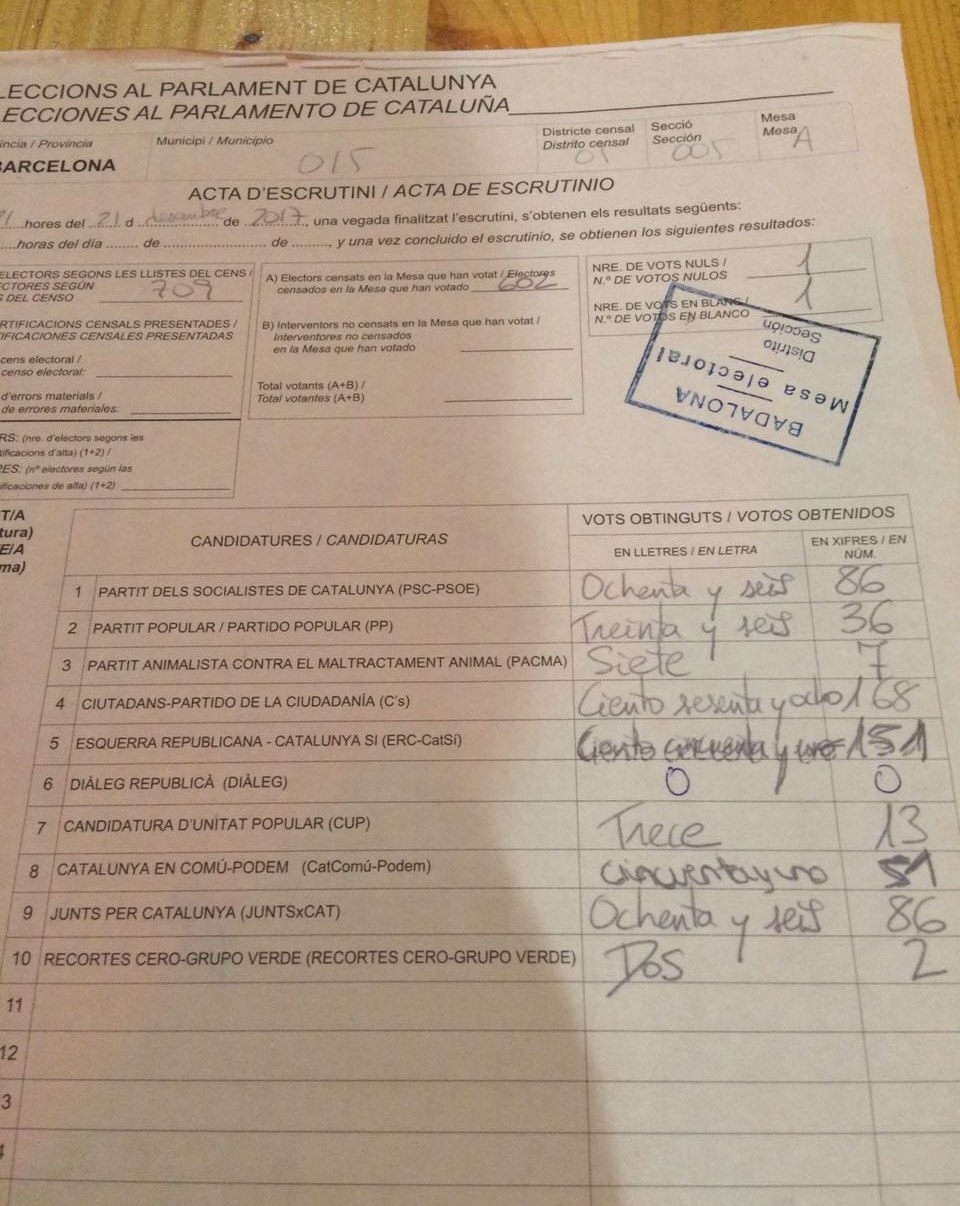 LECCIONS AL PARLAMENT DE CATALUNYA
LECCIONES AL PARLAMENTO DE CATALUÑA
íncia / Provincia
BARCELONA
Municipi / Municipio
015
Districte censal
Distrito censal
01
Secció
Sección
005
Mesa
Mesa
A
ACTA D'ESCRUTINI / ACTA DE ESCRUTINIO
21 hores del 21 d desembre de 2017, una vegada finalitzat l'escrutini, s'obtenen els resultats següents:
horas del día ........ de ........................ de ........, y una vez concluido el escrutinio, se obtienen los siguientes resultados:
ELECTORS SEGONS LES LLISTES DEL CENS /
ECTORES SEGÚN
S DEL CENSO
709
RTIFICACIONS CENSALS PRESENTADES /
IFICACIONES CENSALES PRESENTADAS
cens electoral /
censo electoral:
d'errors materials /
de errores materiales:
RS: (nre. d'electors segons les
tificacions d'alta) (1+2) /
RES: (nº electores según las
ificaciones de alta) (1+2)
A) Electors censats en la Mesa que han votat / Electores
censados en la Mesa que han votado 602
B) Interventors no censats en la Mesa que han votat /
Interventores no censados
en la Mesa que han votado
Total votants (A+B) /
Total votantes (A+B)
NRE. DE VOTS NULS /
N.º DE VOTOS NULOS
1
NRE. DE VOTS EN BLANC /
N.º DE VOTOS EN BLANCO
1
BADALONA
Mesa electoral
Distrito
Sección
T/A
tura)
E/A
ma)
CANDIDATURES / CANDIDATURAS
VOTS OBTINGUTS / VOTOS OBTENIDOS
EN LLETRES / EN LETRA
EN XIFRES / EN NÚM.
1 PARTIT DELS SOCIALISTES DE CATALUNYA (PSC-PSOE) Ochenta y seis 86
2 PARTIT POPULAR / PARTIDO POPULAR (PP) Treinta y seis 36
3 PARTIT ANIMALISTA CONTRA EL MALTRACTAMENT ANIMAL (PACMA) Siete 7
4 CIUTADANS-PARTIDO DE LA CIUDADANÍA (C's) Ciento sesenta y ocho 168
5 ESQUERRA REPUBLICANA - CATALUNYA SI (ERC-CatSí) Ciento cincuenta y uno 151
6 DIÀLEG REPUBLICÀ (DIÀLEG) 0 0
7 CANDIDATURA D'UNITAT POPULAR (CUP) Trece 13
8 CATALUNYA EN COMÚ-PODEM (CatComú-Podem) cincuenta y uno 51
9 JUNTS PER CATALUNYA (JUNTSxCAT) Ochenta y seis 86
10 RECORTES CERO-GRUPO VERDE (RECORTES CERO-GRUPO VERDE) Dos 2
11
12
3
4